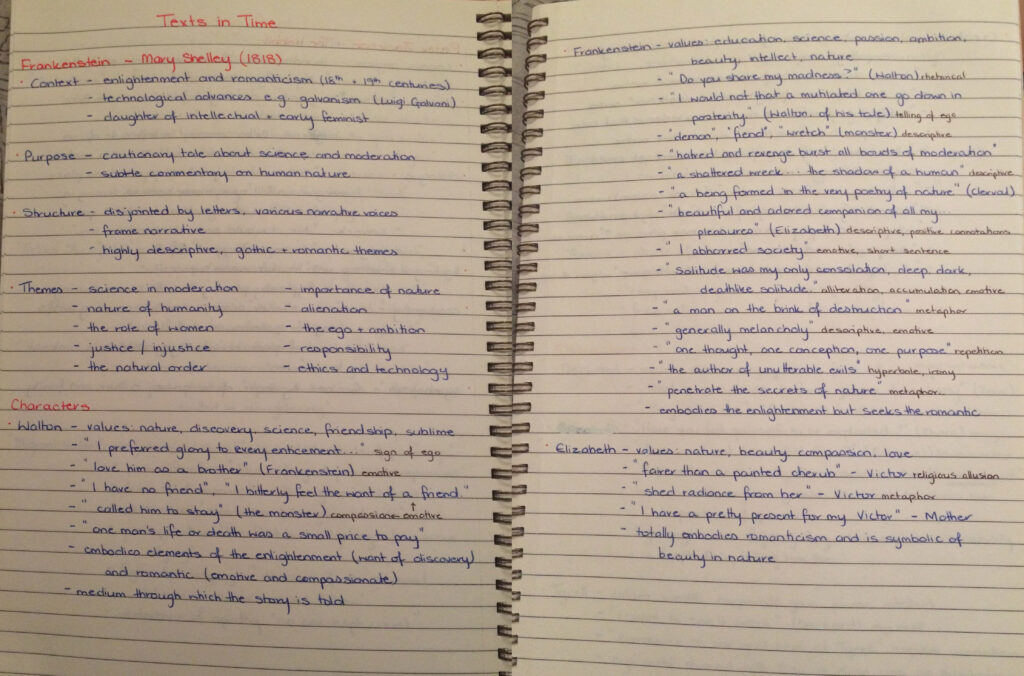 Texts in Time
Frankenstein - Mary Shelley (1818)
· Context - enlightenment and romanticism (18th + 19th centuries)
- technological advances e.g. galvanism (Luigi Galvani)
- daughter of intellectual + early feminist
· Purpose - cautionary tale about science and moderation
- subtle commentary on human nature
· Structure - disjointed by letters, various narrative voices
- frame narrative
- highly descriptive, gothic + romantic themes
· Themes - science in moderation - importance of nature
- nature of humanity - alienation
- the role of women - the ego + ambition
- justice / injustice - responsibility
- the natural order - ethics and technology
Characters
· Walton - values: nature, discovery, science, friendship, sublime
- "I preferred glory to every enticement..." sign of ego
- "love him as a brother" (Frankenstein) emotive
- "I have no friend", "I bitterly feel the want of a friend."
- "called him to stay" (the monster) compassione emotive ↑
- "one man's life or death was a small price to pay"
- embodies elements of the enlightenment (want of discovery)
and romantic (emotive and compassionate)
- medium through which the story is told
· Frankenstein - values: education, science, passion, ambition,
beauty, intellect, nature
- "Do you share my madness?" (Walton) rhetorical
- "I would not that a mutilated one go down in
posterity" (Walton, of his tale) telling of ego
- "demon", "fiend", "wretch" (monster) descriptive
- "hatred and revenge burst all bouds of moderation"
- "a shattered wreck... the shadow of a human" descriptive
- "a being formed in the very poetry of nature" (Clerval)
- "beautiful and adored companion of all my...
pleasures" (Elizabeth) descriptive, positive connotations
- "I abhorred society" emotive, short sentence
- "Solitude was my only consolation, deep, dark,
deathlike solitude." alliteration, accumulation emotive
- "a man on the brink of destruction" metaphor
- "generally melancholy" descriptive, emotive
- "one thought, one conception, one purpose" repetition
- "the author of unutterable evils" hyperbole, irony
- "penetrate the secrets of nature" metaphor..
- embodies the enlightenment but seeks the romantic
· Elizabeth - values: nature, beauty compassion, love
- "fairer than a painted cherub" - Victor religious allusion
- "shed radiance from her" - Victor metaphor
- "I have a pretty present for my Victor" - Mother
- totally embodies romanticism and is symbolic of
beauty in nature